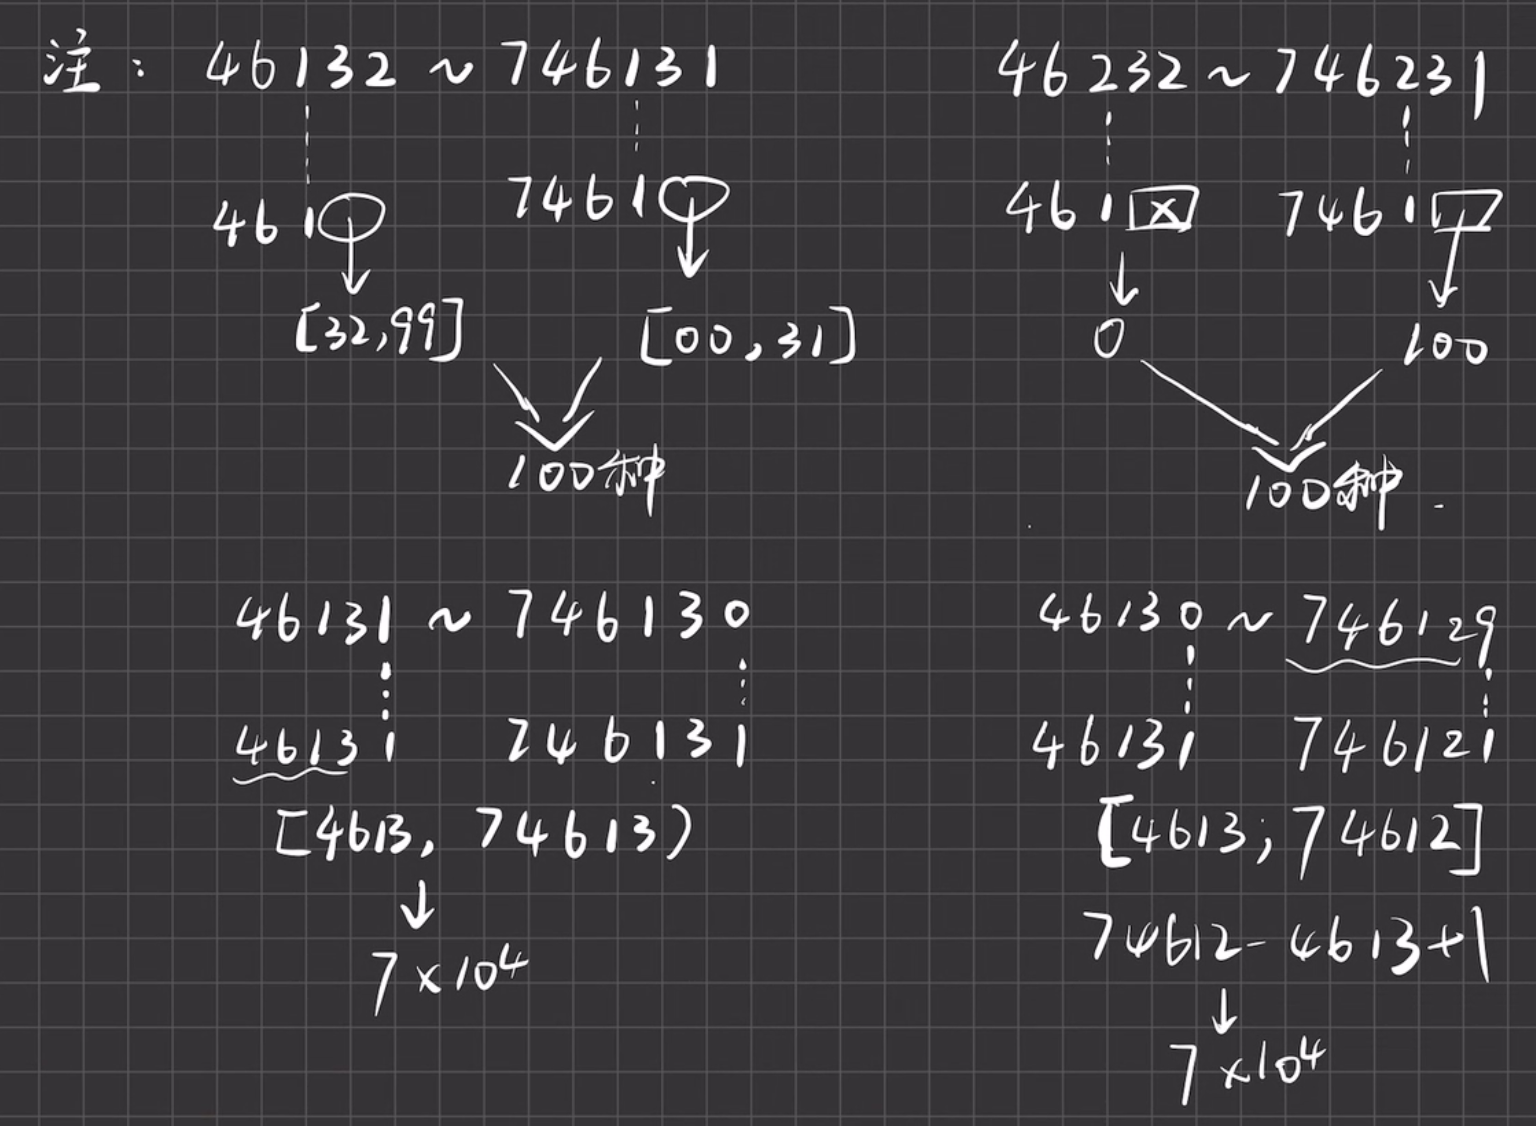 注: 46132 ~ 746131
461
7461
[32,99]
[00,31]
100种
46232 ~ 746231
461 x
7461
0
100
100种.
46131 ~ 746130
46131 746131
[4613, 74613)
7×10⁴
46130 ~ 746129
46131 746121
[4613, 74612]
74612-4613+1
7×10⁴